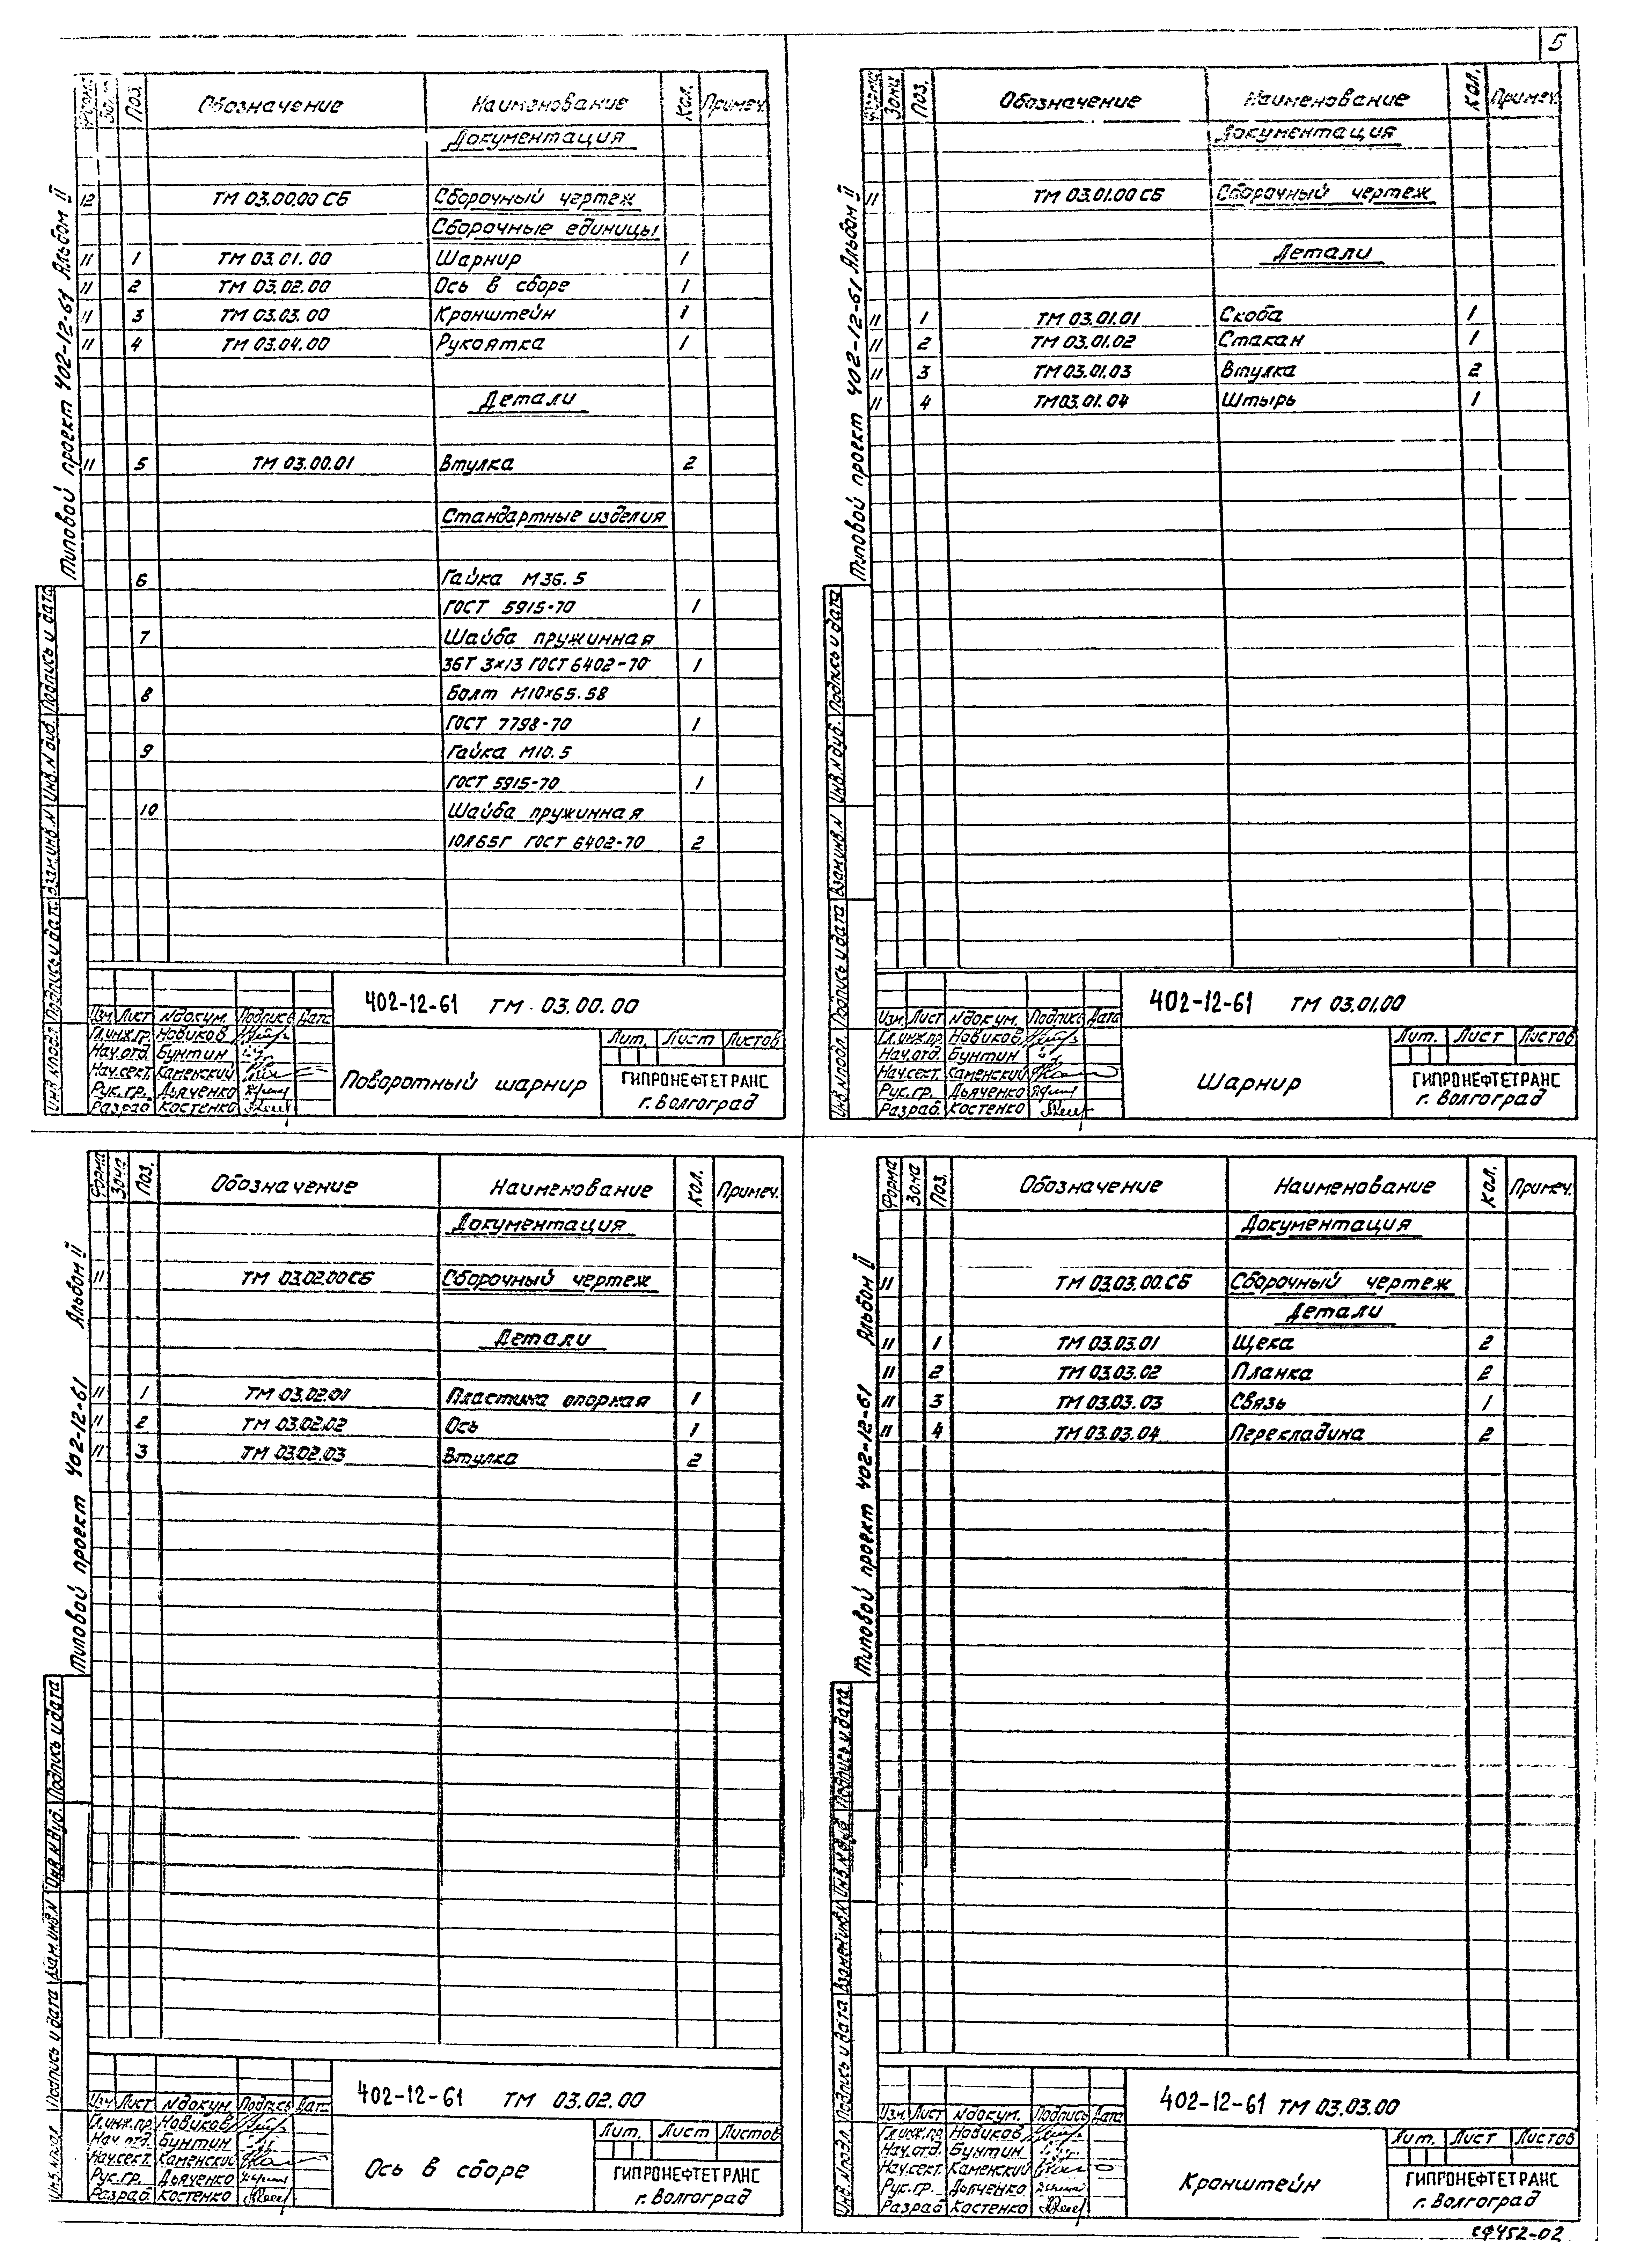 5
Типовой проект 402-12-61 Альбом II
Форм. Зона Поз. Обозначение Наименование Кол. Примеч.
Документация
12 ТМ 03.00.00 СБ Сборочный чертеж
Сборочные единицы
11 1 ТМ 03.01.00 Шарнир 1
11 2 ТМ 03.02.00 Ось в сборе 1
11 3 ТМ 03.03.00 Кронштейн 1
11 4 ТМ 03.04.00 Рукоятка 1
Детали
11 5 ТМ 03.00.01 Втулка 2
Стандартные изделия
6 Гайка М36.5
ГОСТ 5915-70 1
7 Шайба пружинная
36Т 3×13 ГОСТ 6402-70 1
8 Болт М10×65.58
ГОСТ 7798-70 1
9 Гайка М10.5
ГОСТ 5915-70 1
10 Шайба пружинная
10Л65Г ГОСТ 6402-70 2
Инв.№подл. Подпись и дата Взам.инв.№ Инв.№дуб. Подпись и дата
402-12-61 ТМ 03.00.00
Изм. Лист №докум. Подпись Дата
Гл.инж.пр. Новиков
Нач.отд. Бунтин
Нач.сект. Каменский
Рук.гр. Дьяченко
Разраб. Костенко
Поворотный шарнир
Лит. Лист Листов
ГИПРОНЕФТЕТРАНС
г. Волгоград
Типовой проект 402-12-61 Альбом II
Зона Поз. Обозначение Наименование Кол. Примеч.
Документация
11 ТМ 03.01.00 СБ Сборочный чертеж
Детали
11 1 ТМ 03.01.01 Скоба 1
11 2 ТМ 03.01.02 Стакан 1
11 3 ТМ 03.01.03 Втулка 2
11 4 ТМ 03.01.04 Штырь 1
Инв.№подл. Подпись и дата Взам.инв.№ Инв.№дуб. Подпись и дата
402-12-61 ТМ 03.01.00
Изм. Лист №докум. Подпись Дата
Гл.инж.пр. Новиков
Нач.отд. Бунтин
Нач.сект. Каменский
Рук.гр. Дьяченко
Разраб. Костенко
Шарнир
Лит. Лист Листов
ГИПРОНЕФТЕТРАНС
г. Волгоград
Типовой проект 402-12-61 Альбом II
Форма Зона Поз. Обозначение Наименование Кол. Примеч.
Документация
11 ТМ 03.02.00 СБ Сборочный чертеж
Детали
11 1 ТМ 03.02.01 Пластина опорная 1
11 2 ТМ 03.02.02 Ось 1
11 3 ТМ 03.02.03 Втулка 2
Инв.№подл. Подпись и дата Взам.инв.№ Инв.№дуб. Подпись и дата
402-12-61 ТМ 03.02.00
Изм. Лист №докум. Подпись Дата
Гл.инж.пр. Новиков
Нач.отд. Бунтин
Нач.сект. Каменский
Рук.гр. Дьяченко
Разраб. Костенко
Ось в сборе
Лит. Лист Листов
ГИПРОНЕФТЕТРАНС
г. Волгоград
Типовой проект 402-12-61 Альбом II
Форма Зона Поз. Обозначение Наименование Кол. Примеч.
Документация
11 ТМ 03.03.00.СБ Сборочный чертеж
Детали
11 1 ТМ 03.03.01 Щека 2
11 2 ТМ 03.03.02 Планка 2
11 3 ТМ 03.03.03 Связь 1
11 4 ТМ 03.03.04 Перекладина 2
Инв.№подл. Подпись и дата Взамен инв.№ Инв.№дуб. Подпись и дата
402-12-61 ТМ 03.03.00
Изм. Лист №докум. Подпись Дата
Гл.инж.пр. Новиков
Нач.отд. Бунтин
Нач.сект. Каменский
Рук.гр. Дьяченко
Разраб. Костенко
Кронштейн
Лит. Лист Листов
ГИПРОНЕФТЕТРАНС
г. Волгоград
СФ452-02